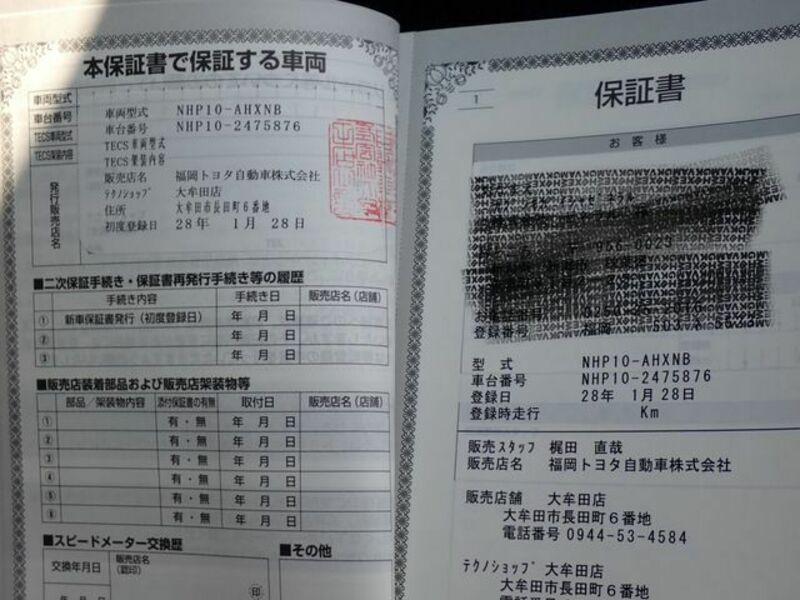 本保証書で保証する車両
車両型式 車両型式 NHP10-AHXNB
車台番号 車台番号 NHP10-2475876
TECS車両型式 TECS車両型式
TECS架装内容 TECS架装内容
発行販売店名
販売店名 福岡トヨタ自動車株式会社
テクノショップ 大牟田店
住所 大牟田市長田町6番地
初度登録日 28年 1月 28日
■二次保証手続き・保証書再発行手続き等の履歴
手続き内容 手続き日 販売店名(店舗)
① 新車保証書発行(初度登録日) 年 月 日
② 年 月 日
③ 年 月 日
■販売店装着部品および販売店架装物等
部品/架装物内容 添付保証書の有無 取付日 販売店名(店舗)
① 有・無 年 月 日
② 有・無 年 月 日
③ 有・無 年 月 日
④ 有・無 年 月 日
⑤ 有・無 年 月 日
⑥ 有・無 年 月 日
■スピードメーター交換歴
交換年月日 販売店名
(認印)
年 月 日 印
■その他
1
保証書
お客様
登録番号 福岡
型式 NHP10-AHXNB
車台番号 NHP10-2475876
登録日 28年 1月28日
登録時走行 Km
販売スタッフ 梶田 直哉
販売店名 福岡トヨタ自動車株式会社
販売店舗 大牟田店
大牟田市長田町6番地
電話番号 0944-53-4584
テクノショップ 大牟田店
大牟田市長田町6番地